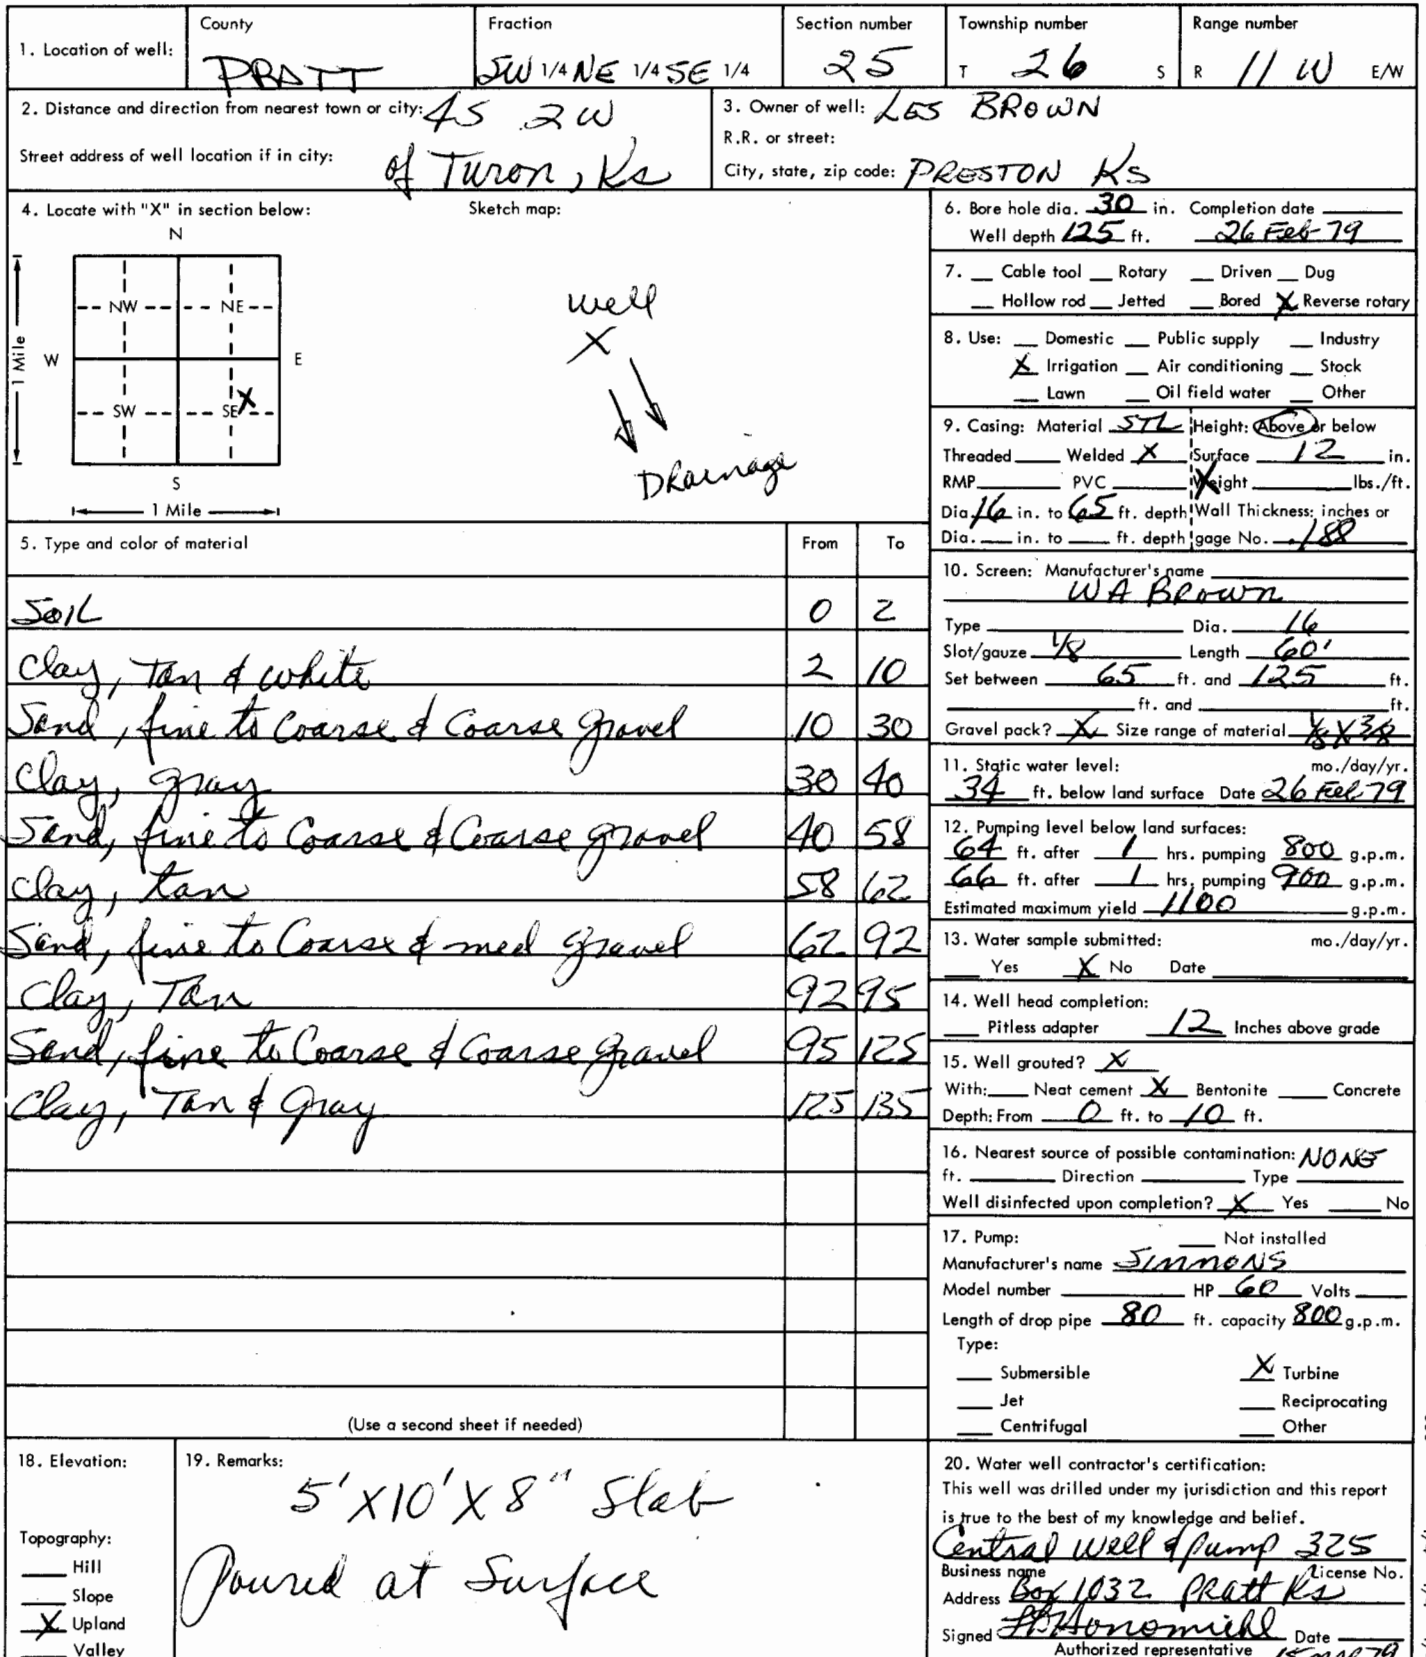 1. Location of well: County PRATT Fraction SW 1/4 NE 1/4 SE 1/4 Section number 25 Township number T 26 S Range number R 11 W E/W
2. Distance and direction from nearest town or city: 4S 2W
Street address of well location if in city: of Turon, Ks
3. Owner of well: LES BROWN
R.R. or street:
City, state, zip code: PRESTON Ks
4. Locate with "X" in section below: Sketch map:
N
NW NE
W E
SW SE X
S
1 Mile
1 Mile
well
X
Drainage
5. Type and color of material From To
Soil 0 2
Clay, Tan & white 2 10
Sand, fine to Coarse & Coarse gravel 10 30
Clay, gray 30 40
Sand, fine to Coarse & Coarse gravel 40 58
Clay, tan 58 62
Sand, fine to Coarse & med gravel 62 92
Clay, Tan 92 95
Sand, fine to Coarse & Coarse gravel 95 125
Clay, Tan & Gray 125 135
(Use a second sheet if needed)
6. Bore hole dia. 30 in. Completion date
Well depth 125 ft. 26 Feb-79
7. Cable tool Rotary Driven Dug
Hollow rod Jetted Bored X Reverse rotary
8. Use: Domestic Public supply Industry
X Irrigation Air conditioning Stock
Lawn Oil field water Other
9. Casing: Material STL Height: Above or below
Threaded Welded X Surface 12 in.
RMP PVC Weight lbs./ft.
Dia. 16 in. to 65 ft. depth Wall Thickness: inches or
Dia. in. to ft. depth gage No. .188
10. Screen: Manufacturer's name
WA Brown
Type Dia. 16
Slot/gauze 1/8 Length 60'
Set between 65 ft. and 125 ft.
ft. and ft.
Gravel pack? X Size range of material 1/8 X 3/8
11. Static water level: mo./day/yr.
34 ft. below land surface Date 26 Feb-79
12. Pumping level below land surfaces:
64 ft. after 1 hrs. pumping 800 g.p.m.
66 ft. after 1 hrs. pumping 900 g.p.m.
Estimated maximum yield 1100 g.p.m.
13. Water sample submitted: mo./day/yr.
Yes X No Date
14. Well head completion:
Pitless adapter 12 Inches above grade
15. Well grouted? X
With: Neat cement X Bentonite Concrete
Depth: From 0 ft. to 10 ft.
16. Nearest source of possible contamination: NONE
ft. Direction Type
Well disinfected upon completion? X Yes No
17. Pump: Not installed
Manufacturer's name SIMMONS
Model number HP 60 Volts
Length of drop pipe 80 ft. capacity 800 g.p.m.
Type:
Submersible X Turbine
Jet Reciprocating
Centrifugal Other
18. Elevation:
Topography:
Hill
Slope
X Upland
Valley
19. Remarks:
5' X 10' X 8" Slab
Poured at Surface
20. Water well contractor's certification:
This well was drilled under my jurisdiction and this report
is true to the best of my knowledge and belief.
Central Well & Pump 325
Business name License No.
Address Box 1032 Pratt Ks
Signed Honomichl Date
Authorized representative